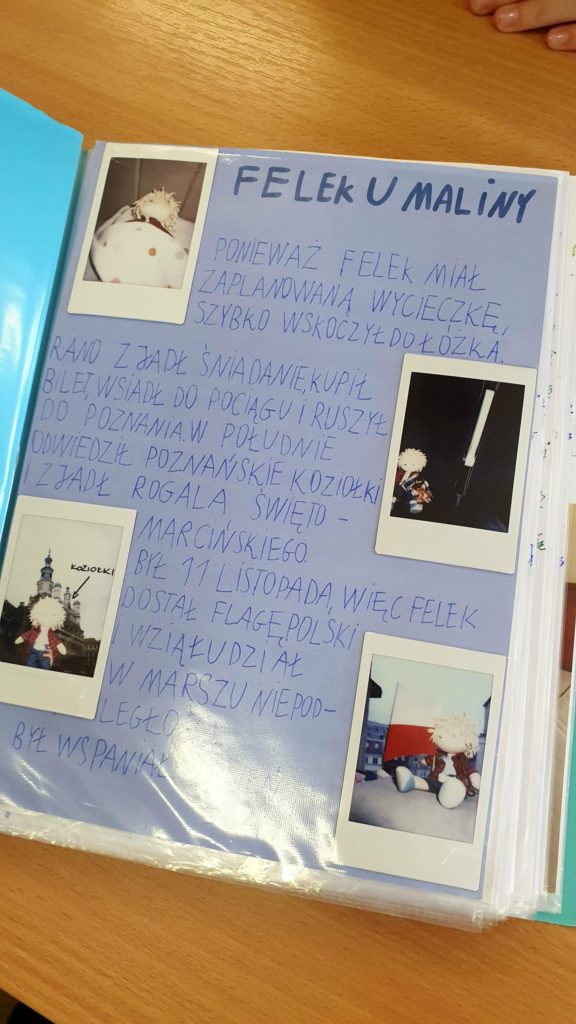 FELEK U MALINY
PONIEWAŻ FELEK MIAŁ
ZAPLANOWANĄ WYCIECZKĘ,
SZYBKO WSKOCZYŁ DO ŁÓŻKA.
RANO ZJADŁ ŚNIADANIE, KUPIŁ
BILET, WSIADŁ DO POCIĄGU I RUSZYŁ
DO POZNANIA. W POŁUDNIE
ODWIEDZIŁ POZNAŃSKIE KOZIOŁKI
I ZJADŁ ROGALA ŚWIĘTO-
MARCIŃSKIEGO.
KOZIOŁKI
BYŁ 11 LISTOPADA, WIĘC FELEK
DOSTAŁ FLAGĘ POLSKI
I WZIĄŁ UDZIAŁ
W MARSZU NIEPOD-
LEGŁO
BYŁ WSPANIAŁ